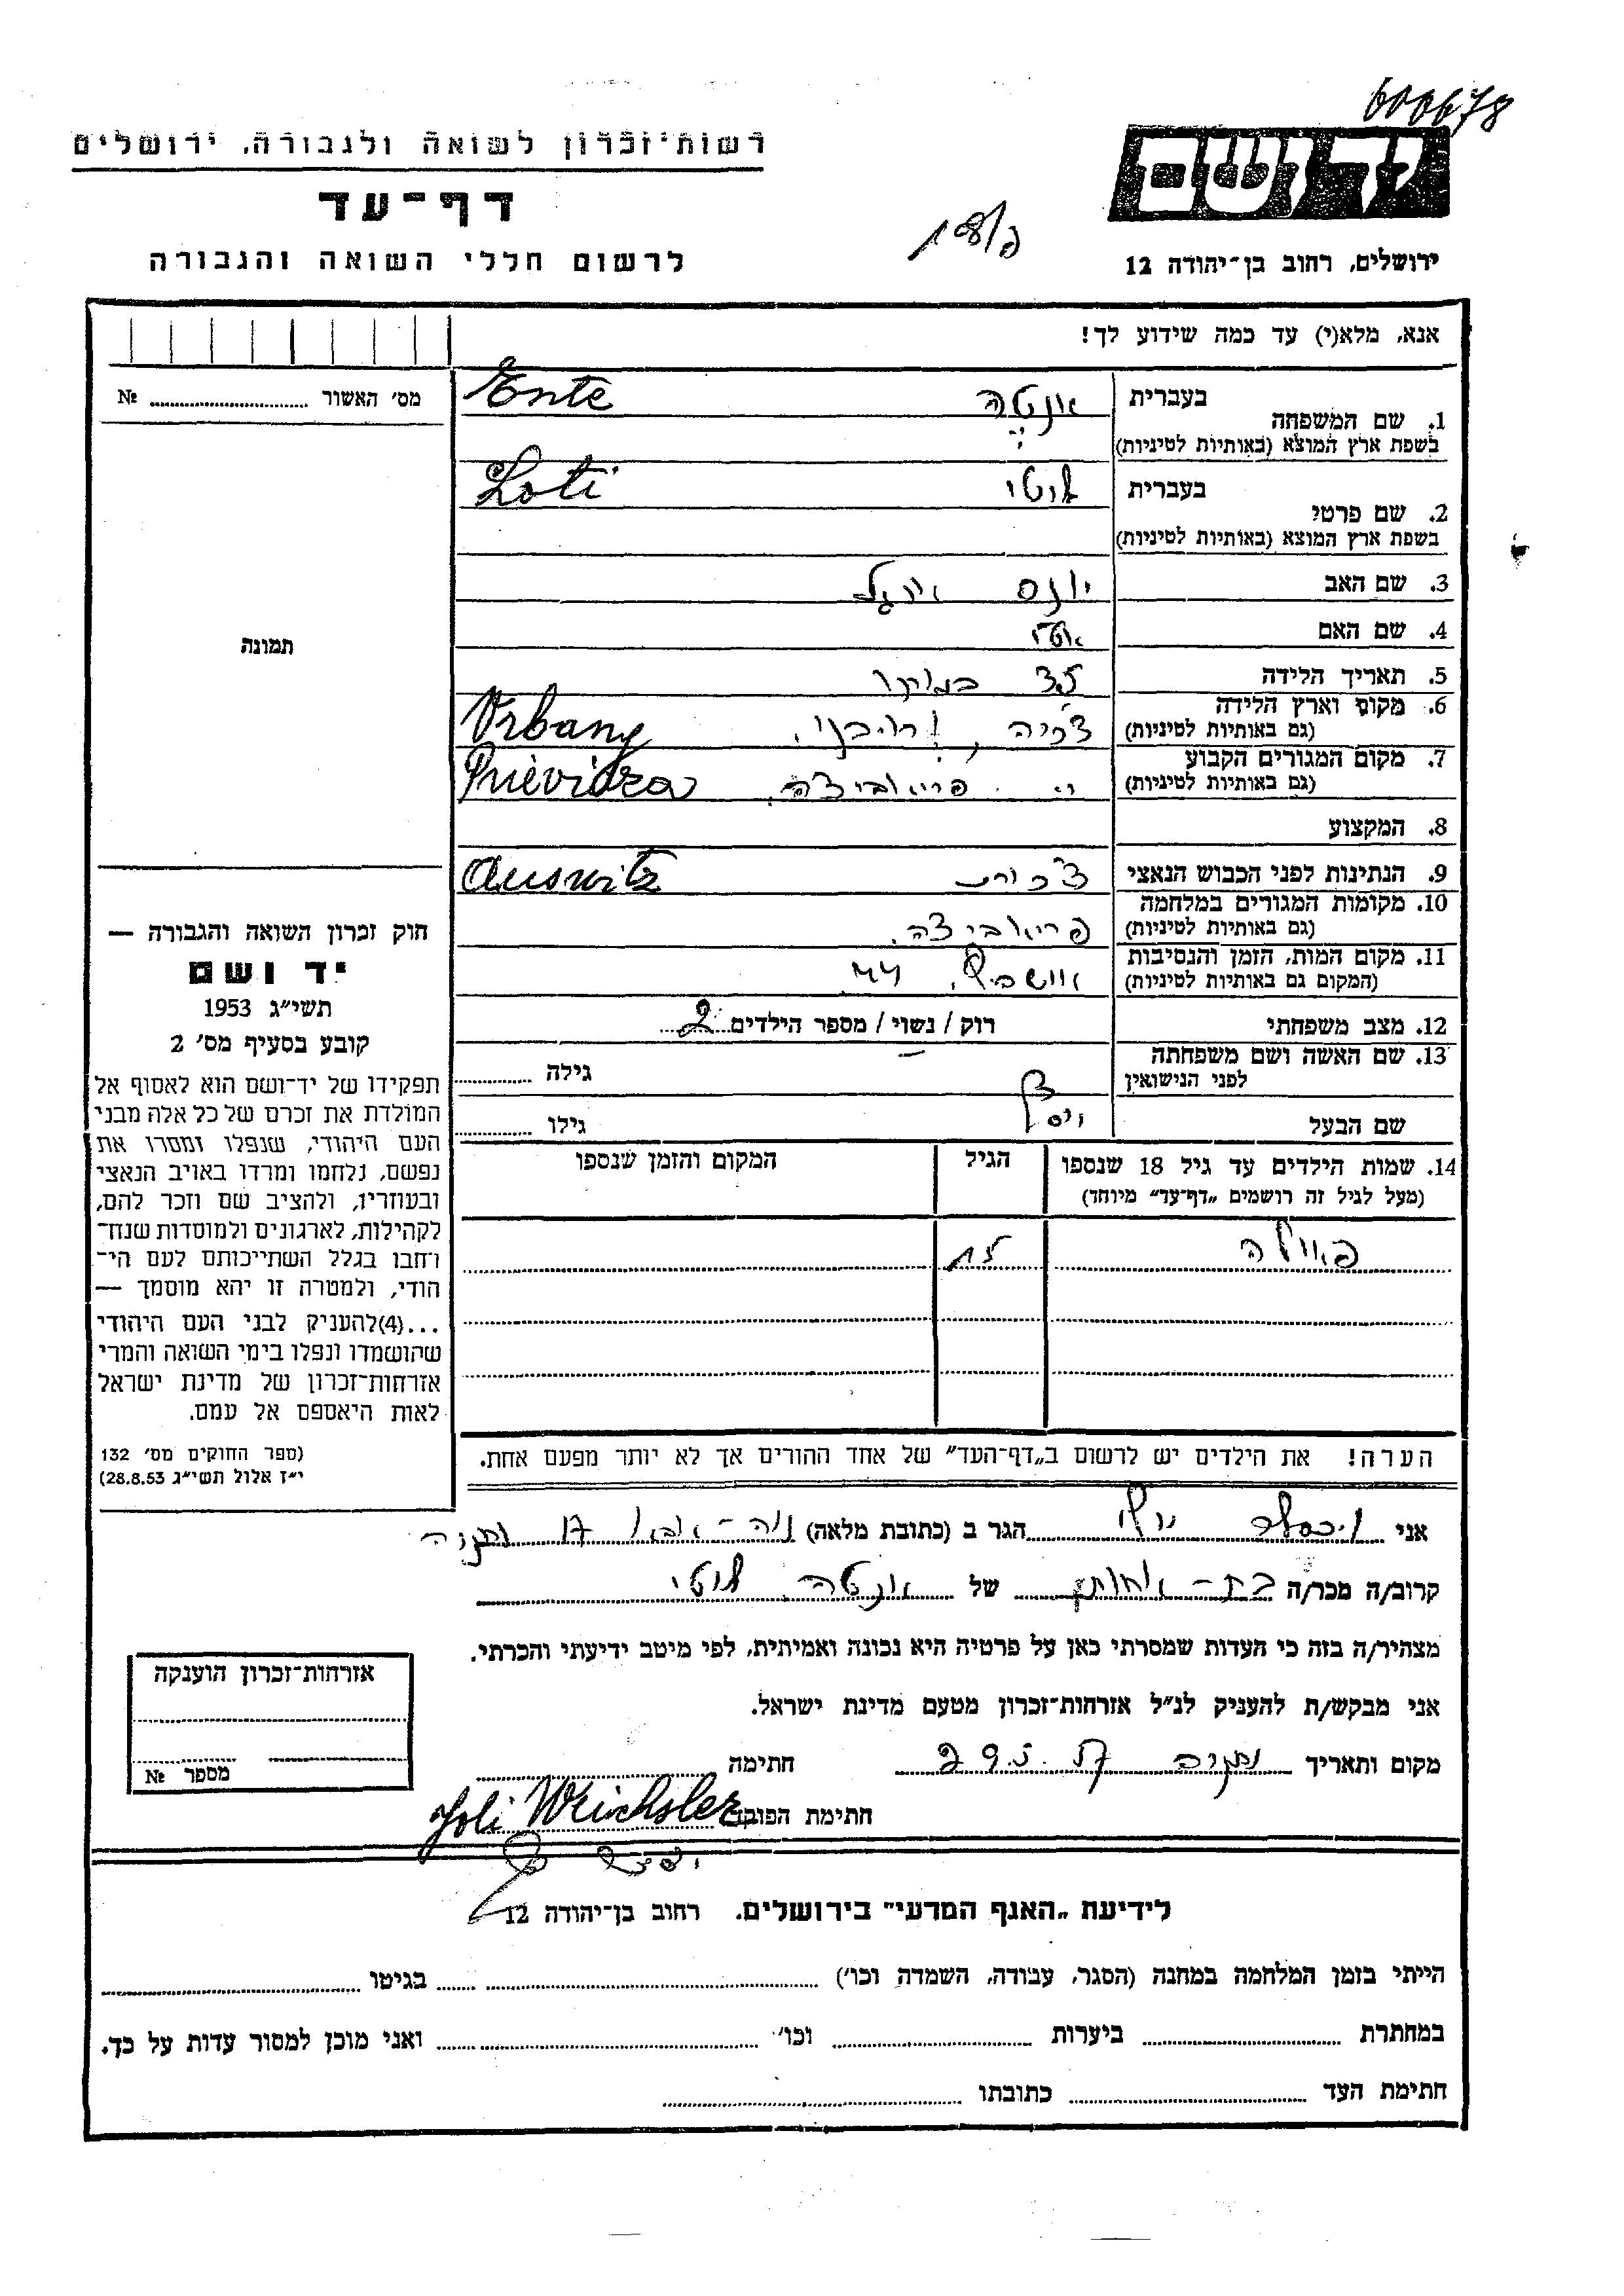 600678
רשות־זכרון לשואה ולגבורה, ירושלים
יד ושם
דף־עד
לרשום חללי השואה והגבורה
ירושלים, רחוב בן־יהודה 12
אנא, מלא(י) עד כמה שידוע לך!
מס׳ האשור № ........
1. שם המשפחה בעברית אנטה Ente
בשפת ארץ המוצא (באותיות לטיניות)
2. שם פרטי בעברית לוטי Loti
בשפת ארץ המוצא (באותיות לטיניות)
3. שם האב
4. שם האם
5. תאריך הלידה 35
6. מקום וארץ הלידה Vrbany
(גם באותיות לטיניות)
7. מקום המגורים הקבוע פריאבידצה Prievidza
(גם באותיות לטיניות)
8. המקצוע
9. הנתינות לפני הכבוש הנאצי Auswitz
10. מקומות המגורים במלחמה
(גם באותיות לטיניות)
11. מקום המות, הזמן והנסיבות 44
(המקום גם באותיות לטיניות)
12. מצב משפחתי רוק / נשוי / מספר הילדים 2
13. שם האשה ושם משפחתה
לפני הנישואין גילה ........
שם הבעל גילו ........
תמונה
חוק זכרון השואה והגבורה —
יד ושם
תשי״ג 1953
קובע בסעיף מס׳ 2
תפקידו של יד־ושם הוא לאסוף אל
המולדת את זכרם של כל אלה מבני
העם היהודי, שנפלו ומסרו את
נפשם, נלחמו ומרדו באויב הנאצי
ובעוזריו, ולהציב שם וזכר להם,
לקהילות, לארגונים ולמוסדות שנח־
רחבו בגלל השתייכותם לעם הי־
הודי, ולמטרה זו יהא מוסמך —
...(4)להעניק לבני העם היהודי
שהושמדו ונפלו בימי השואה והמרי
אזרחות־זכרון של מדינת ישראל
לאות היאספם אל עמם.
(ספר החוקים מס׳ 132
י״ז אלול תשי״ג 28.8.53)
14. שמות הילדים עד גיל 18 שנספו הגיל המקום והזמן שנספו
(מעל לגיל זה רושמים „דף־עד״ מיוחד)
פאולה 15
הערה! את הילדים יש לרשום ב„דף־העד״ של אחד ההורים אך לא יותר מפעם אחת.
אני הגר ב (כתובת מלאה)
קרוב/ה מכר/ה בת־ של אנטה לוטי
מצהיר/ה בזה כי העדות שמסרתי כאן על פרטיה היא נכונה ואמיתית, לפי מיטב ידיעתי והכרתי.
אני מבקש/ת להעניק לנ״ל אזרחות־זכרון מטעם מדינת ישראל.
מקום ותאריך חתימה
חתימת הפוקד Joli Weichsler
אזרחות־זכרון הוענקה
מספר №
לידיעת „האגף המדעי״ בירושלים. רחוב בן־יהודה 12
הייתי בזמן המלחמה במחנה (הסגר, עבודה, השמדה וכו׳) ........ בגיטו ........
במחתרת ........ ביערות ........ וכו׳ ........ ואני מוכן למסור עדות על כך.
חתימת העד ........ כתובתו ........